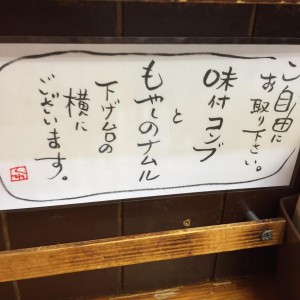 ご自由に
お取り下さい。
味付コンブ
と
もやしのナムル
下げ台の
横に
ございます。